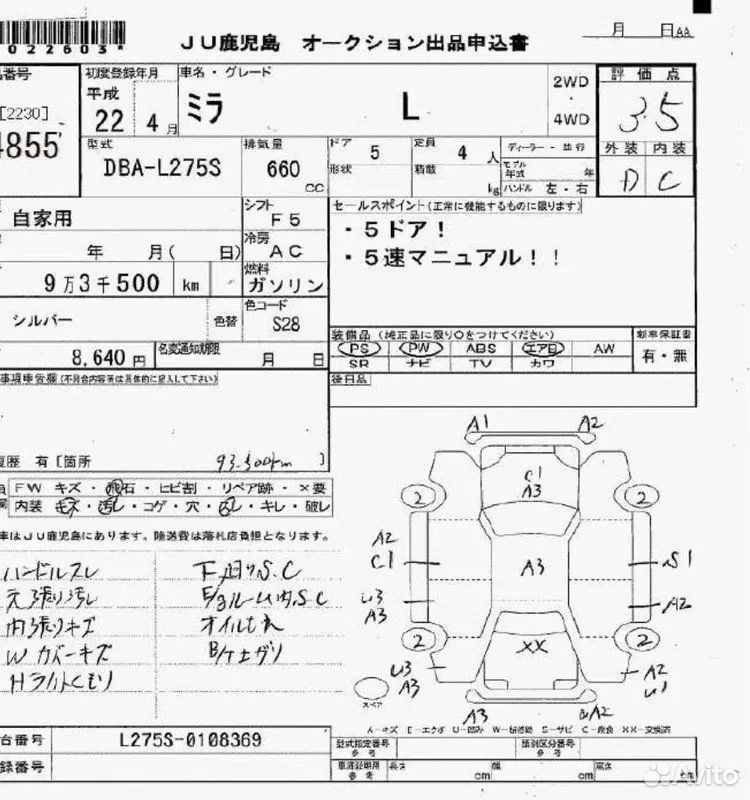 022603*
JU鹿児島 オークション出品申込書
月 日AA
番号
[2230]
4855
初度登録年月
平成
22 4月
車名・グレード
ミラ L
2WD
・
4WD
評価点
3.5
外装 内装
D C
型式
DBA-L275S
排気量
660
CC
ドア 5
形状
定員 4 人
積載 kg
ディーラー・並行
モデル年式 年
ハンドル 左・右
自家用
シフト
F5
セールスポイント(正常に機能するものに限ります)
・5ドア!
・5速マニュアル!!
年 月( 日)
冷房
AC
9万3千500 km
燃料
ガソリン
シルバー
色替
色コード
S28
装備品(純正品に限り○をつけてください)
新車保証書
PS PW ABS エアB AW
有・無
SR ナビ TV カワ
8,640円
名変通知期限
月 日
後日品
事項申告欄(不具合内容等は具体的に記入して下さい)
歴 有[箇所 93.500km ]
FW キズ・飛石・ヒビ割・リペア跡・×要
内装 キズ・汚レ・コゲ・穴・凹レ・キレ・破レ
車はJU鹿児島にあります。陸送費は落札店負担となります。
ハンドルスレ
天張り汚レ
内張りキズ
Wカバーキズ
Hライトくもり
下廻りS.C
E/gルーム内S.C
オイルもれ
A1
A2
C1
A3
2
2
A2
C1
A3
S1
U3
A3
A2
2
2
XX
U3
A3
A2
U1
スペア
A3
A2
A-キズ E-エクボ U-凹み W-補修跡 S-サビ C-腐食 XX-交換済
台番号
L275S-0108369
型式指定番号
参考
類別区分番号
参考
録番号
車庫証明用
参考
長さ cm
幅 cm
高さ cm
Avito